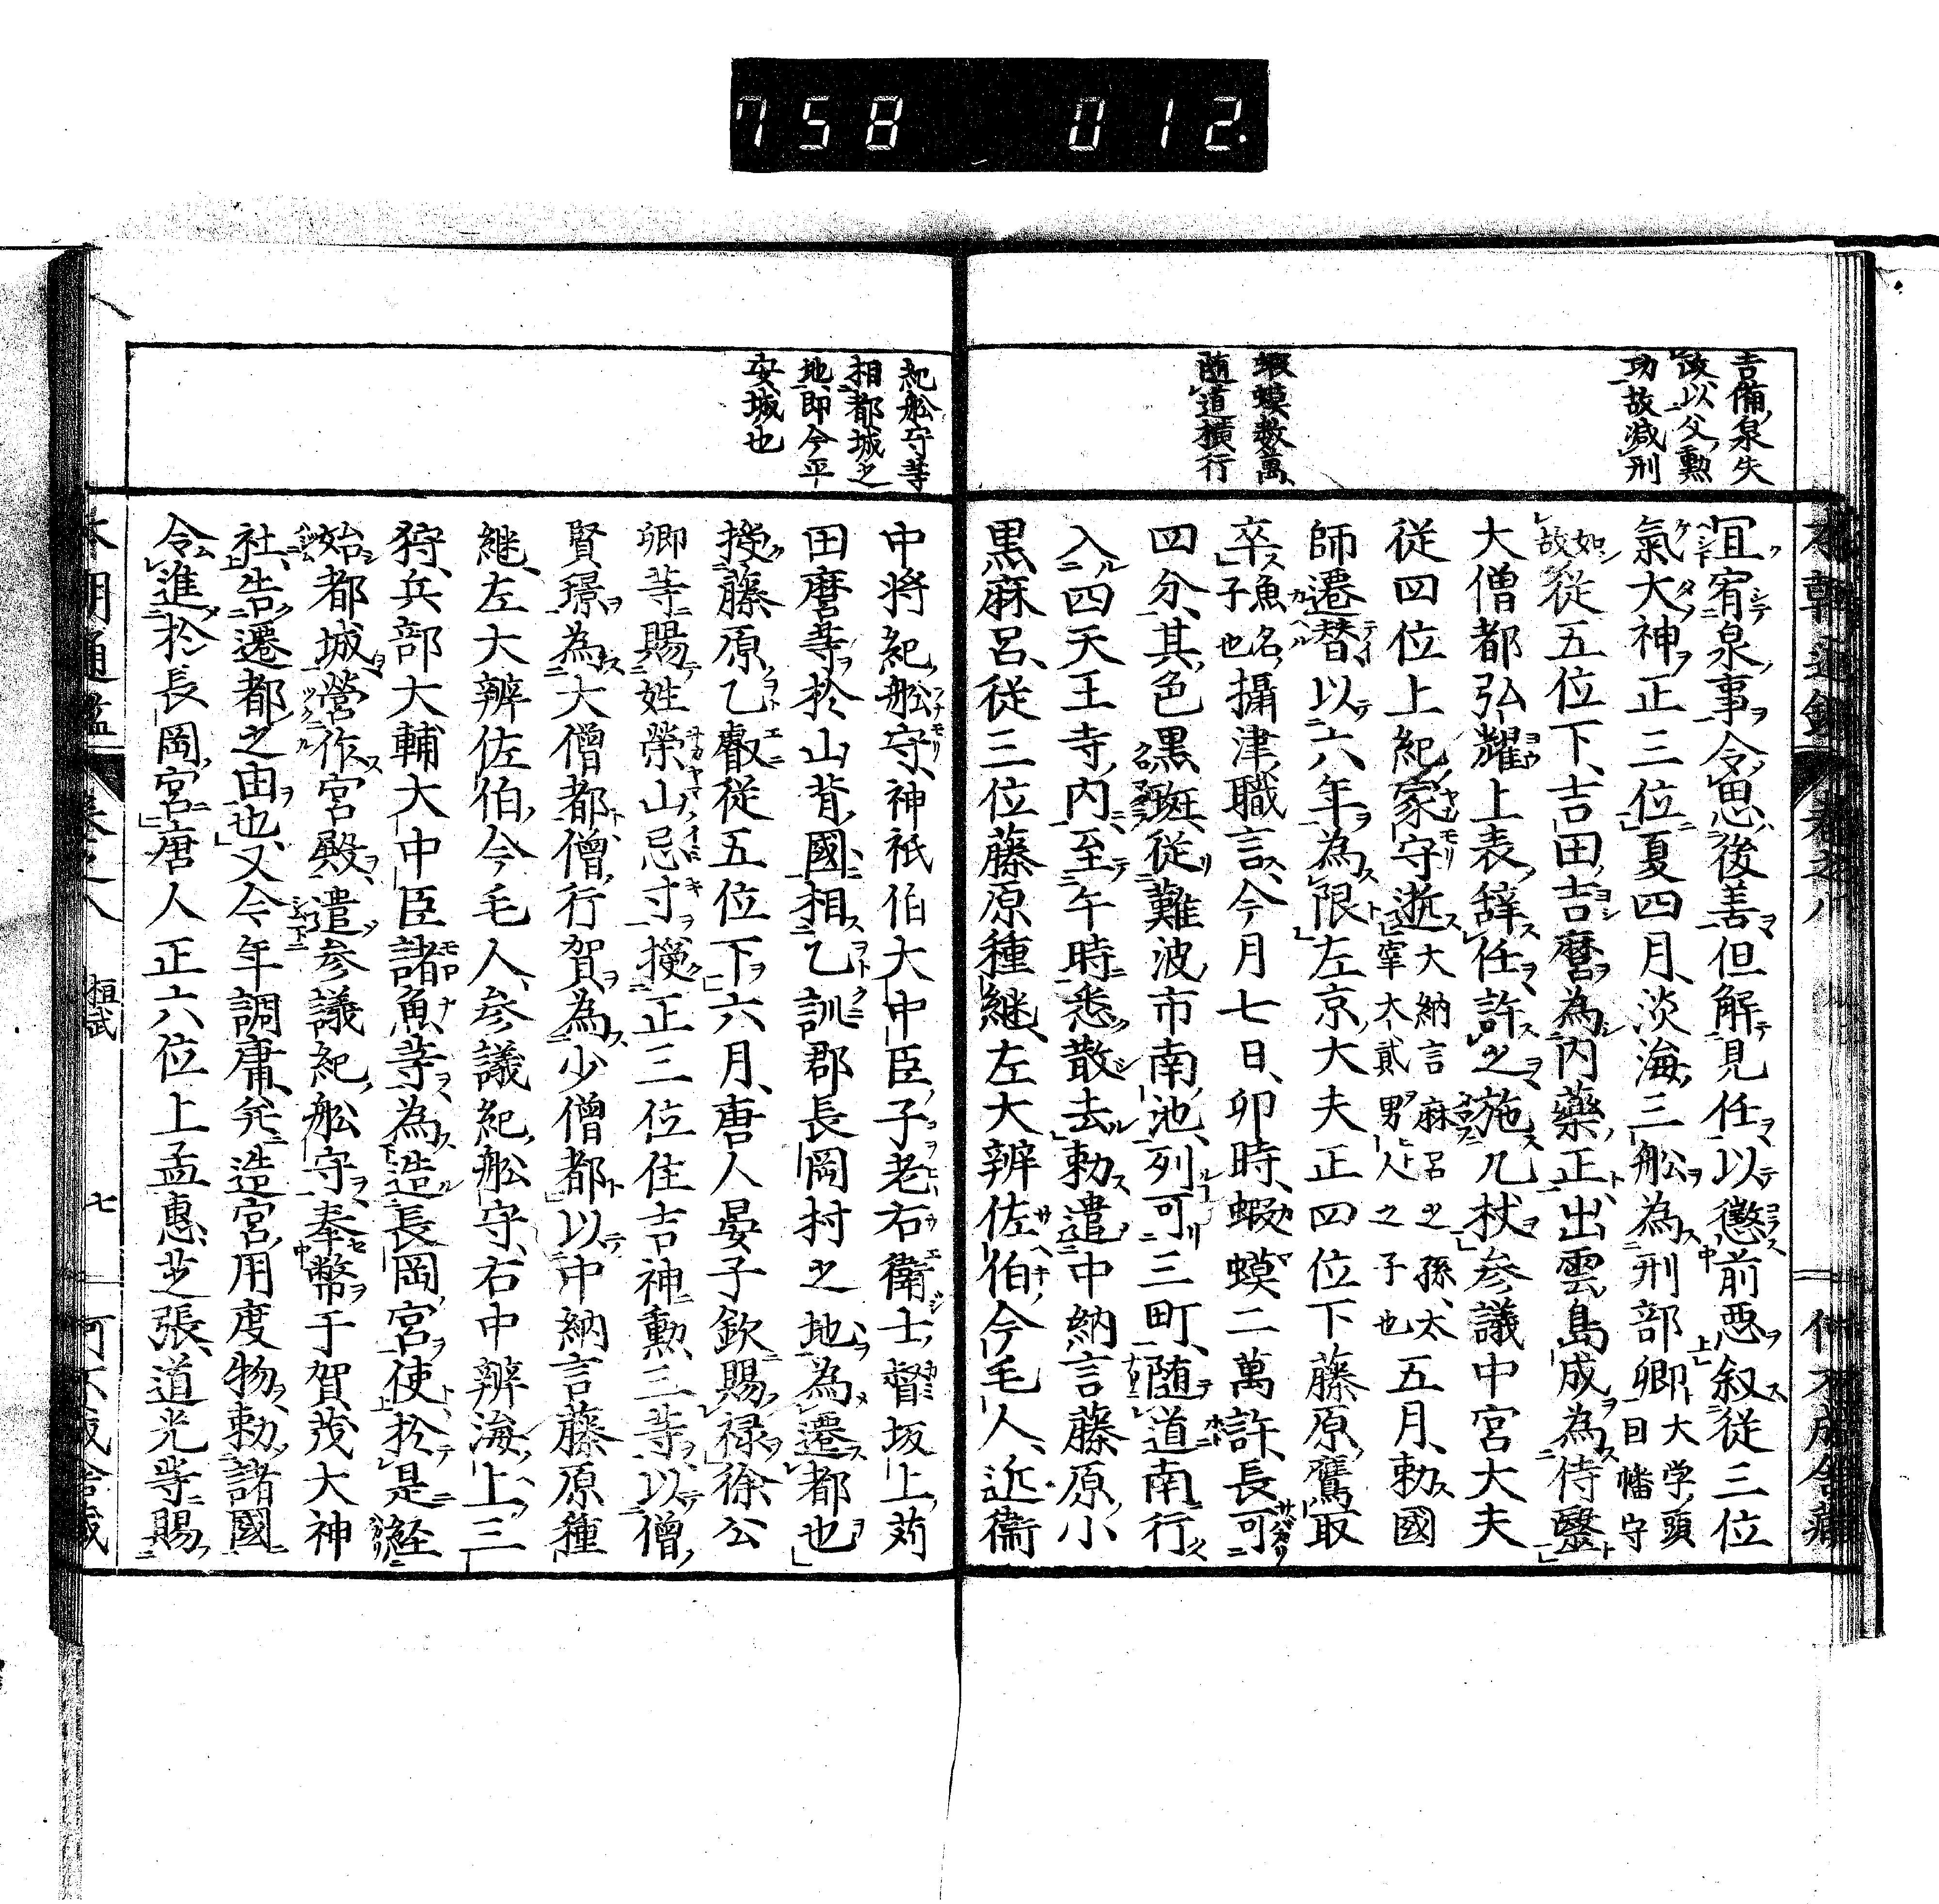 758 012.
吉備泉失
政以父勲
功故減刑
蝦蟆数萬
随道横行
宜宥泉事令思後善但解見任以懲前悪叙従三位
氣大神正三位夏四月淡海三舩為刑部卿大学頭因幡守
如故従五位下吉田吉麿為内藥正出雲島成為侍醫
大僧都弘耀上表辞任許之施几杖参議中宮大夫
従四位上紀家守逝大納言麻呂之孫太宰大貳男人之子也五月勅國
師遷替以六年為限左京大夫正四位下藤原鷹取
卒魚名子也攝津職言今月七日卯時蝦蟆二萬許長可
四分其色黒斑従難波市南池列可三町随道南行
入四天王寺内至午時悉散去勅遣中納言藤原小
黒麻呂従三位藤原種継左大辨佐伯今毛人近衞
紀舩守等
相都城之
地即今平
安城也
中将紀舩守神祇伯大中臣子老右衛士督坂上苅
田麿等於山背國相乙訓郡長岡村之地為遷都也
授藤原乙叡従五位下六月唐人晏子欽賜禄徐公
卿等賜姓榮山忌寸授正三位住吉神勳三等以僧
賢璟為大僧都僧行賀為少僧都以中納言藤原種
継左大辨佐伯今毛人参議紀舩守右中辨海上三
狩兵部大輔大中臣諸魚等為造長岡宮使於是経
始都城營作宮殿遣参議紀舩守奉幣于賀茂大神
社告遷都之由也又今年調庸并造宮用度物勅諸國
令進於長岡宮唐人正六位上孟惠芝張道光等賜
本朝通鑑 巻之八 桓武 七